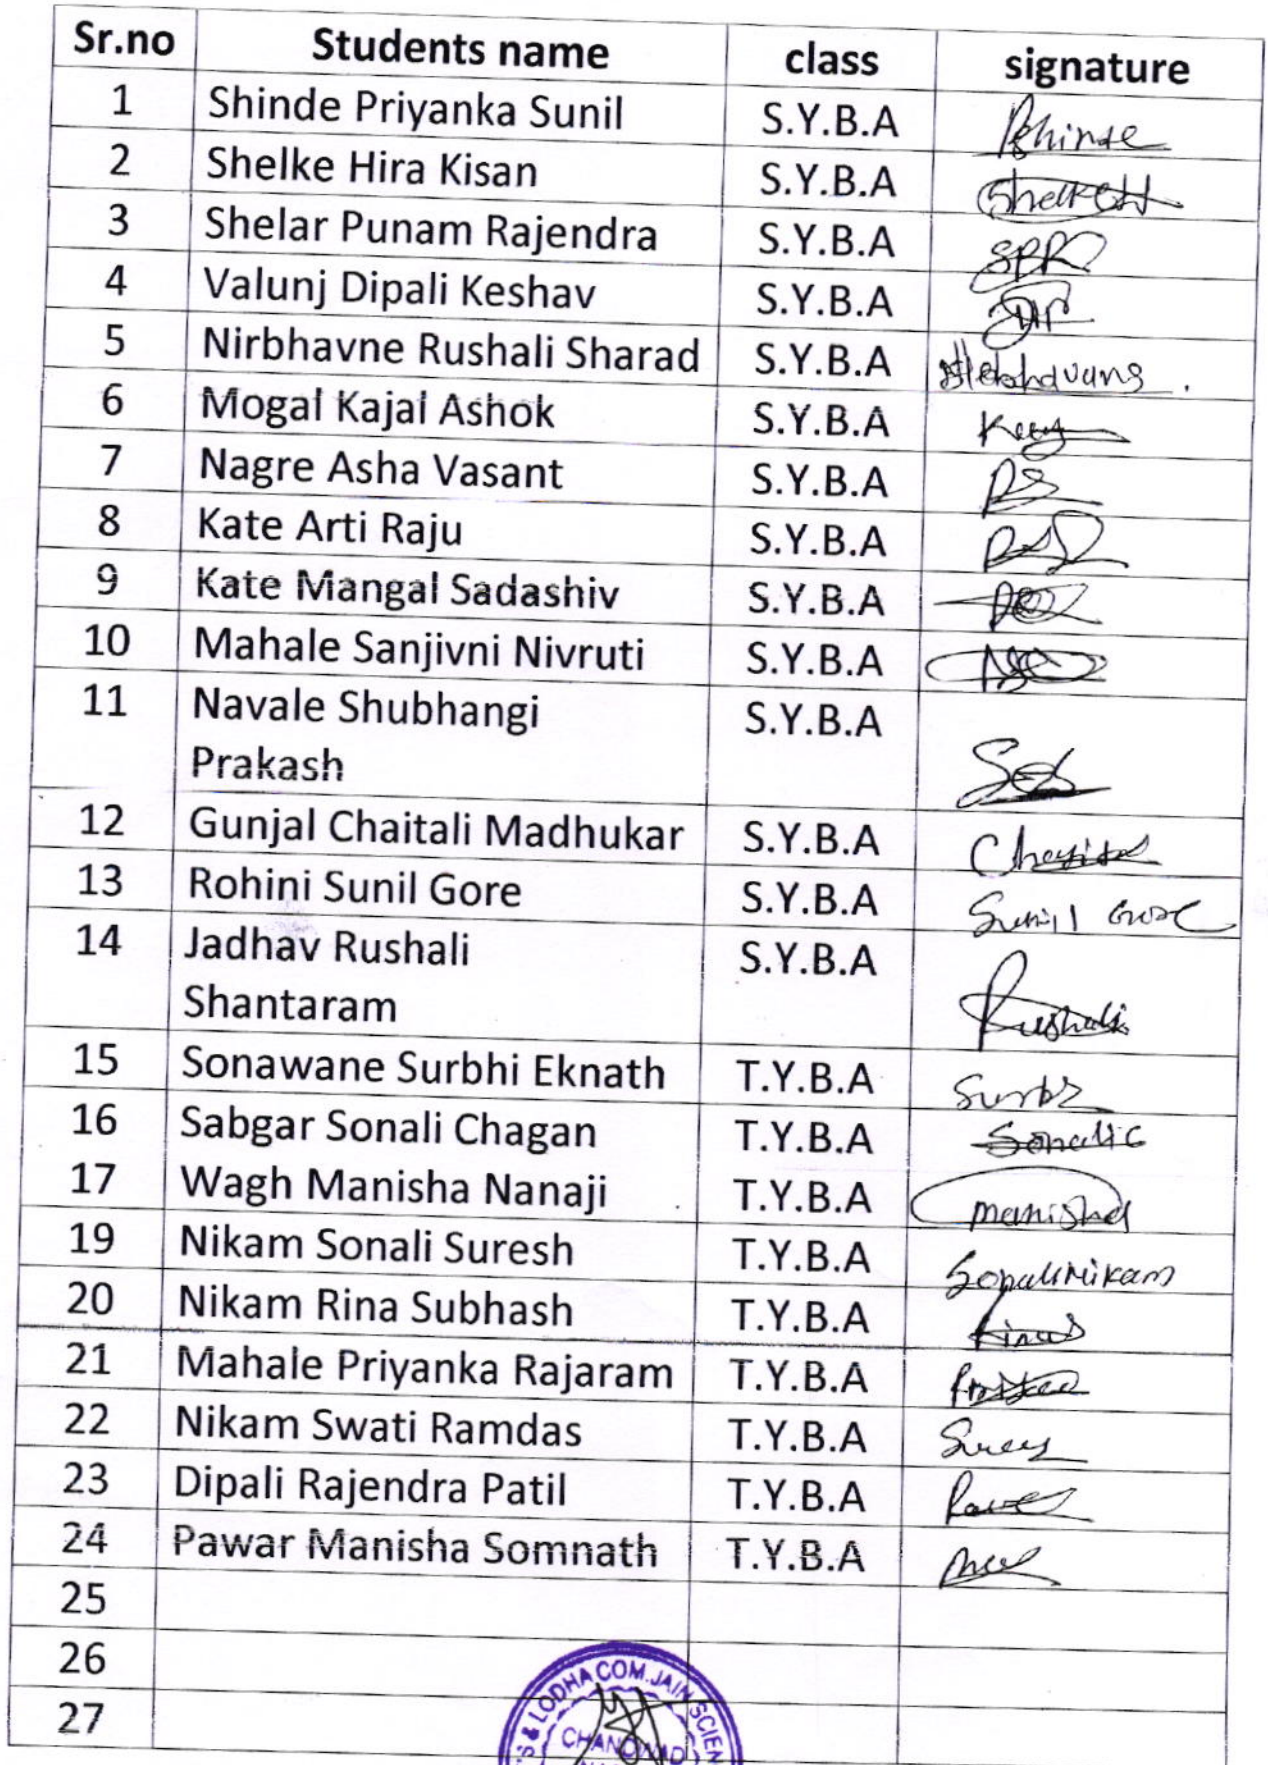 Sr.no Students name class signature
1 Shinde Priyanka Sunil S.Y.B.A Pshinde
2 Shelke Hira Kisan S.Y.B.A
3 Shelar Punam Rajendra S.Y.B.A SPR
4 Valunj Dipali Keshav S.Y.B.A
5 Nirbhavne Rushali Sharad S.Y.B.A
6 Mogal Kajal Ashok S.Y.B.A
7 Nagre Asha Vasant S.Y.B.A
8 Kate Arti Raju S.Y.B.A
9 Kate Mangal Sadashiv S.Y.B.A
10 Mahale Sanjivni Nivruti S.Y.B.A
11 Navale Shubhangi S.Y.B.A
Prakash
12 Gunjal Chaitali Madhukar S.Y.B.A
13 Rohini Sunil Gore S.Y.B.A Sunil Gore
14 Jadhav Rushali S.Y.B.A
Shantaram Rushali
15 Sonawane Surbhi Eknath T.Y.B.A
16 Sabgar Sonali Chagan T.Y.B.A Sonali C
17 Wagh Manisha Nanaji T.Y.B.A manisha
19 Nikam Sonali Suresh T.Y.B.A Sonali Nikam
20 Nikam Rina Subhash T.Y.B.A
21 Mahale Priyanka Rajaram T.Y.B.A
22 Nikam Swati Ramdas T.Y.B.A
23 Dipali Rajendra Patil T.Y.B.A
24 Pawar Manisha Somnath T.Y.B.A
25
26
27
& LODHA COM. JAIN SCIEN
CHANDWAD